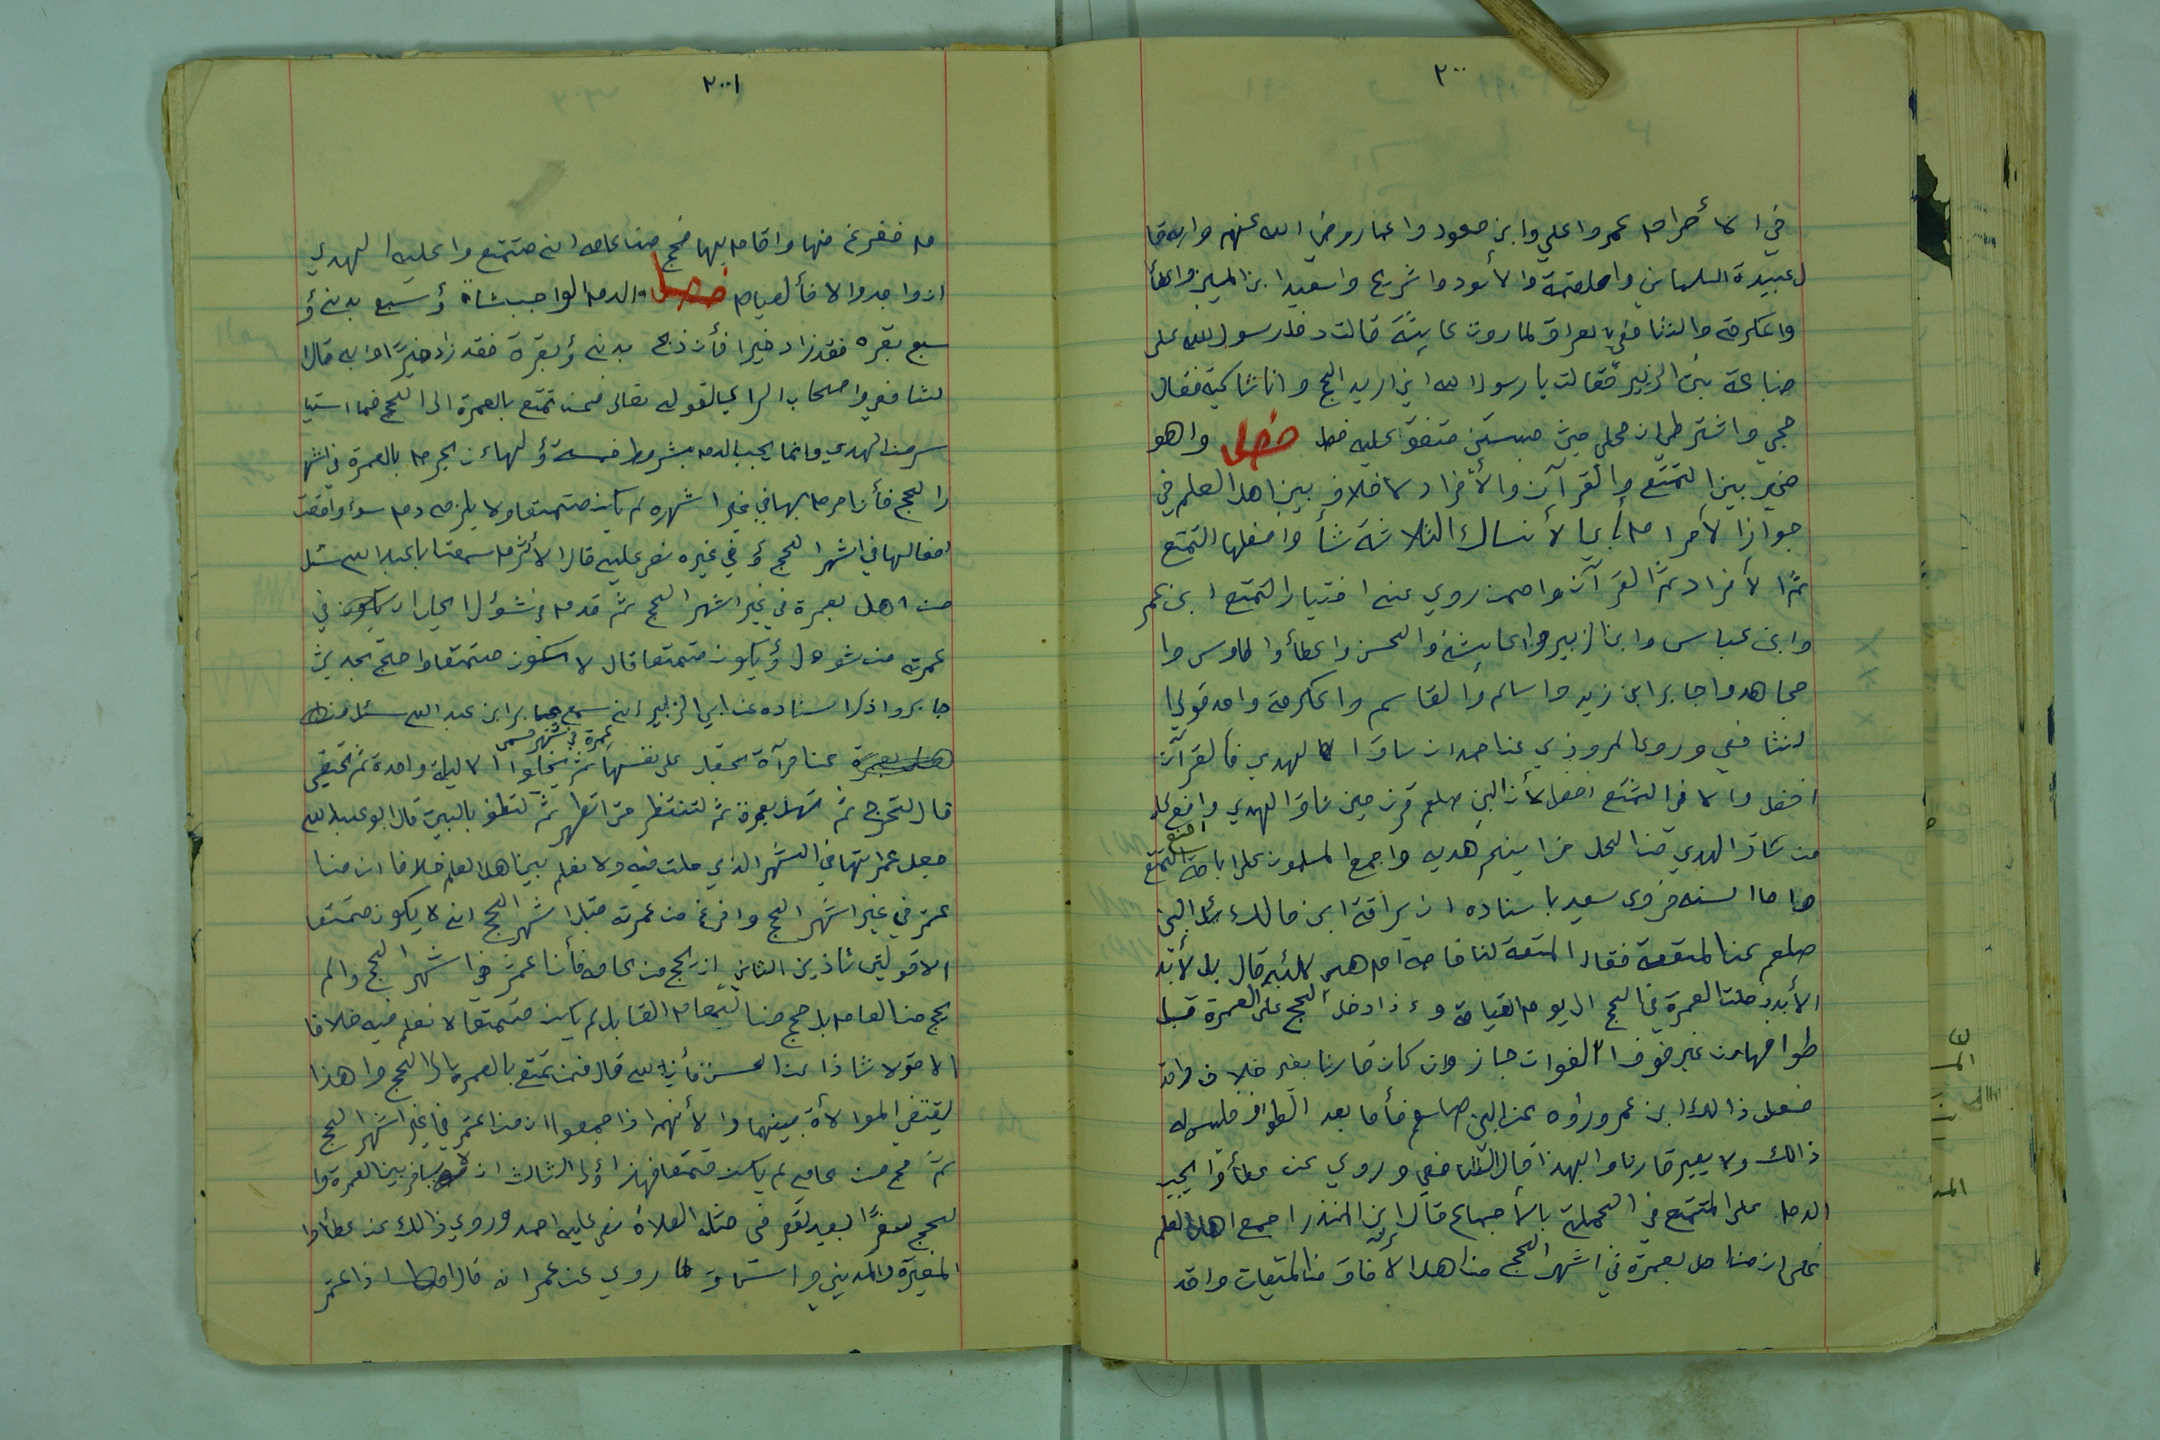 ٢٠٠
في الاأحرام عمر واعلي وابن مسعود واعمار ورضي الله عنهم وابه قا
ل عبيدة السلماني واعلقمة والأسود وا شريح واسعيد ابن المسيب واعطأ
واعكرمة والشافعي بعراق لما روت عايشة قالت دخل رسول الله على
ضباعة بنت الزبير فقالت يا رسول الله اني اريد الحج وانا شاكية فقال
حجي واشترطي ان محلي حيث حبستني متفق عليه فصل واهو
مخير بين التمتع والقرآن والأفراد لا خلاف بين اهل العلم في
جواز الأحرام بأي الأنساك الثلاثة شأ وافضلها التمتع
ثم الأفراد ثم القرآن واممن روي عنه اختيار التمتع ابن عمر
وابن عباس وابن الزبير واعايشة والحسن واعطأ واطاوس وا
مجاهد واجابر ابن زيد واسالم والقاسم واعكرمة واحد قولي ا
لشافعي وروى المروذي عن احمد ان ساق الهدي فألقرآن
افضل والا في التمتع افضل لأن النبي صلعم قرن حين ساق الهدي وامنع كل
من ساق الهدي من الحل حتى ينحر هديه واجمع المسلمون على اباحة التمتع
واما السنه فروى سعيد باسناده ان سراقة ابن مالك سأل النبي
صلعم عن المتعة فقال المتعة لنا خاصة ام هي للأبد قال بل لأبد
الأبد دخلت العمرة في الحج الى يوم القيامة وءذا دخل الحج على العمرة قبل
طوافها من غير خوف الفوات جاز وان كان قارنا بغير خلاف واقد
فعل ذالك ابن عمر ورواه عن النبي صلعم فأما بعد الطواف فليس له
ذالك ولا يصير قارنا وابهذا قال الشافعي وروي عن عطأ وا يجب
الدم على المتمتع في الجملة بالأجماع قال ابن المنذر اجمع اهل العلم
على ان من اهل بعمرة في اشهر الحج من اهل الأفاق من الميقات واقد
٢٠٠١
م ففرغ منها واقام بها فحج من عامه انه متمتع واعليه الهدي
ان واجد والا فألصيام فصل والدم الواجب شاة أو سبع بدنه أو
سبع بقره فقد زاد خيرا فأن ذبح بدنه أو بقرة فقد زاد خيرًا وابه قال ا
لشافعي واصحاب الراي لقوله تعالى فمن تمتع بالعمرة الى الحج فما استيا
سر من الهدي وانما يجب الدم بشروط خمسة أولها ءن يحرم بالعمرة في اشهر
ر الحج فأن احرم بها في غير اشهره لم يكن متمتعا ولا يلزمه دم سواء وقعت
افعالها في اشهر الحج أو في غيره نص عليه قال الأثرم سمعت ابا عبد الله سئل
من اهل بعمرة في غير اشهر الحج ثم قدم في شوال ايحل ان يكون في
عمرته من شوال أو يكون متمتعا قال لا يكون متمتعا واحتج بحديث
جابر واذكر اسناده عن ابي الزبير انه سمع جابر ابن عبد الله سئل
عن امرآة تجعل على نفسها عمرة في شهر مسمى ثم يخلوا الا ليلة واحدة ثم تحيض
قال لتخرج ثم لتهل بعمرة ثم لتنتظر حتى تطهر ثم لتطف بالبيت قال ابو عبد الله
فجعل عمرتها في الشهر الذي حلت فيه ولا نعلم بين اهل العلم خلافا ان من ا
عتمر في غير اشهر الحج وافرغ من عمرته قبل اشهر الحج انه لا يكون متمتعا
الا قولين شاذين الثاني ان يحج من عامه فأن اعمر في اشهر الحج والم
يحج من العام بل حج من العام القابل لم يكن متمتعا لا نعلم فيه خلافا
الا قولا شاذا عن الحسن فأن الله قال فمن تمتع بالعمرة الى الحج واهذا
يقتضي الموالاة بينهما والأنهم اذا اجمعوا ان من اعتمر في غير اشهر الحج
ثم حج من عامه لم يكن متمتعا فهذا أولى الثالث ان لا يسافر بين العمرة وا
لحج سفرًا بعيد تقصر في مثله الصلاة نص عليه احمد وروي ذالك عن عطأ وا
المغيرة والمديني واسحاق لما روي عن عمر انه قال اذا اعتمر